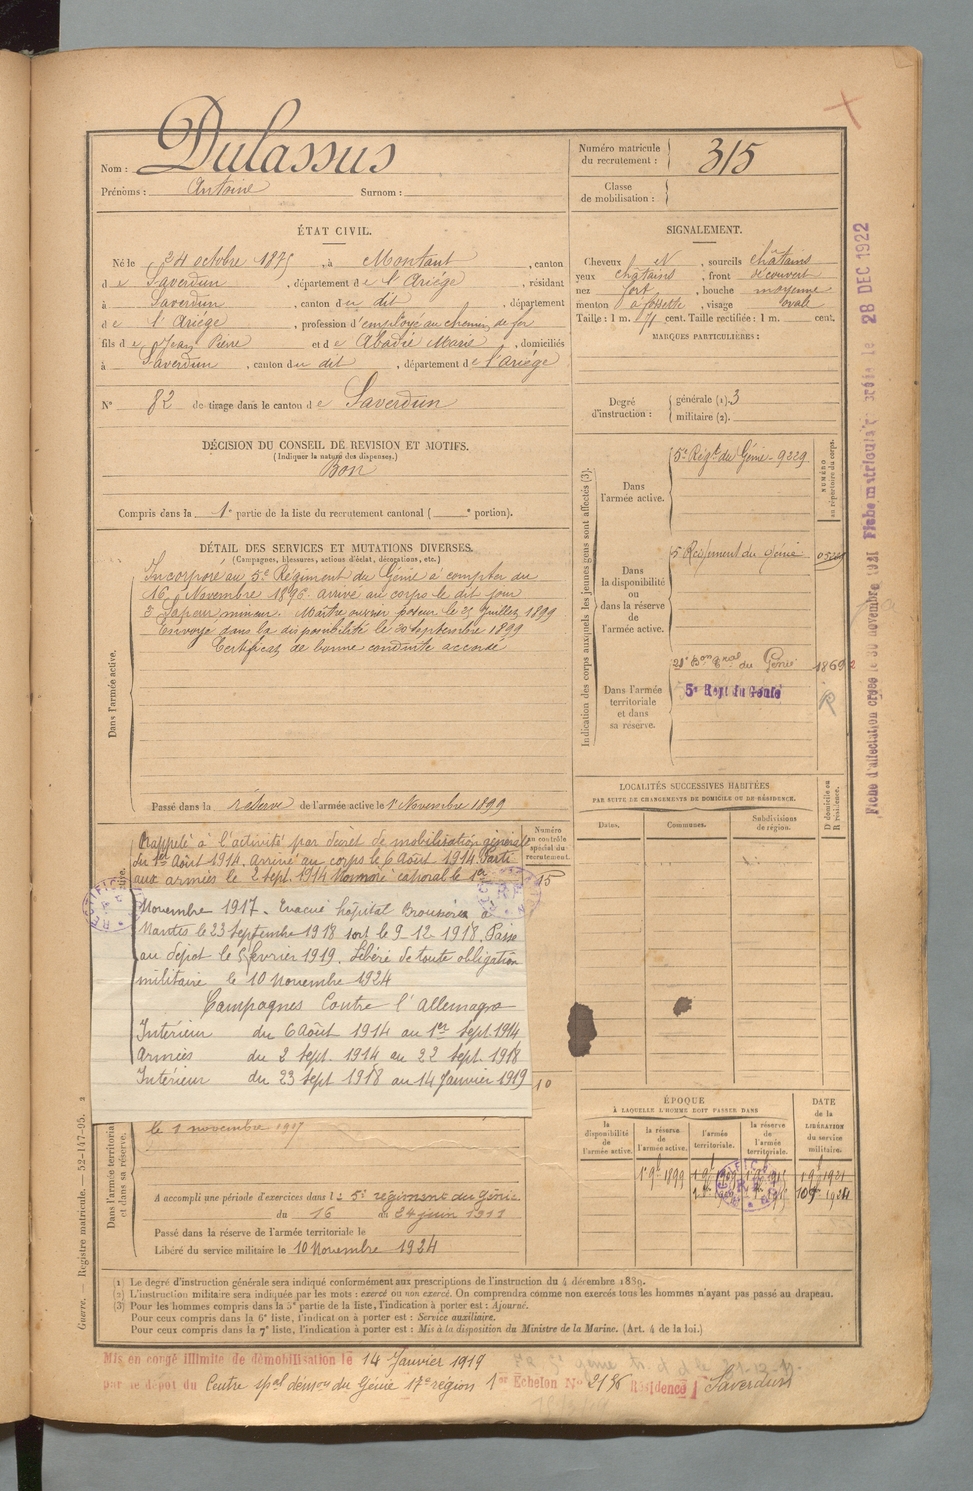 Nom : Dulassus
Prénoms : Antoine Surnom :
Numéro matricule du recrutement : 315
Classe de mobilisation :
ÉTAT CIVIL.
Né le 24 octobre 1875, à Montaut, canton
de Saverdun, département de l'Ariége, résidant
à Saverdun, canton du dit, département
de l'Ariége, profession d'employé au chemin de fer
fils de Jean Pierre et de Abadie Marie, domiciliés
à Saverdun, canton du dit, département de l'Ariége
N° 82 de tirage dans le canton de Saverdun
SIGNALEMENT.
Cheveux et sourcils châtains
yeux chatains, front découvert
nez fort, bouche moyenne
menton à fossette, visage ovale
Taille : 1 m. 71 cent. Taille rectifiée : 1 m. cent.
MARQUES PARTICULIÈRES :
Degré d'instruction : générale (1). 3
militaire (2).
DÉCISION DU CONSEIL DE REVISION ET MOTIFS.
(Indiquer la nature des dispenses.)
Bon
Compris dans la 1e partie de la liste du recrutement cantonal ( e portion).
DÉTAIL DES SERVICES ET MUTATIONS DIVERSES.
(Campagnes, blessures, actions d'éclat, décorations, etc.)
Dans l'armée active.
Incorporé au 5e Régiment du Génie à compter du
16 Novembre 1896 arrivé au corps le dit jour
Sapeur mineur. Maître ouvrier poseur le 25 Juillet 1899
Envoyé dans la disponibilité le 20 septembre 1899
Certificat de bonne conduite accordé
Passé dans la réserve de l'armée active le 1er Novembre 1899
Indication des corps auxquels les jeunes gens sont affectés (3).
Dans l'armée active. 5e Régt du Génie - 9229
NUMÉRO au répertoire du corps.
Dans la disponibilité ou dans la réserve de l'armée active. 5 Régiment du génie
Dans l'armée territoriale et dans sa réserve. 21e Bon Gral du Génie 1869
5e Régt du Génie
LOCALITÉS SUCCESSIVES HABITÉES
PAR SUITE DE CHANGEMENTS DE DOMICILE OU DE RÉSIDENCE.
Dates. Communes. Subdivisions de région. D domicile ou R résidence.
Numéro au contrôle spécial du recrutement.
15
Rappelé à l'activité par décret de mobilisation générale
du 1er Août 1914. Arrivé au corps le 6 Août 1914. Parti
aux armées le 2 sept. 1914 Nommé caporal le 1er
Novembre 1917. Evacué hôpital Broussais à
Nantes le 23 septembre 1918 sort le 9-12-1918. Passé
au dépot le 5 février 1919. Libéré de toute obligation
militaire le 10 Novembre 1924
Campagnes Contre l'Allemagne
Intérieur du 6 Août 1914 au 1er sept. 1914
Armées du 2 sept. 1914 au 22 sept. 1918
Intérieur du 23 sept 1918 au 14 Janvier 1919
10
le 1 novembre 1917
Dans l'armée territoriale et dans sa réserve.
A accompli une période d'exercices dans le 5e régiment du génie
du 16 au 24 juin 1911
Passé dans la réserve de l'armée territoriale le
Libéré du service militaire le 10 Novembre 1924
ÉPOQUE
À LAQUELLE L'HOMME DOIT PASSER DANS
la disponibilité de l'armée active. la réserve de l'armée active. l'armée territoriale. la réserve de l'armée territoriale.
DATE de la LIBÉRATION du service militaire.
1 9b 1899
(1) Le degré d'instruction générale sera indiqué conformément aux prescriptions de l'instruction du 4 décembre 1889.
(2) L'instruction militaire sera indiquée par les mots : exercé ou non exercé. On comprendra comme non exercés tous les hommes n'ayant pas passé au drapeau.
(3) Pour les hommes compris dans la 5e partie de la liste, l'indication à porter est : Ajourné.
Pour ceux compris dans la 6e liste, l'indication à porter est : Service auxiliaire.
Pour ceux compris dans la 7e liste, l'indication à porter est : Mis à la disposition du Ministre de la Marine. (Art. 4 de la loi.)
Mis en congé illimité de démobilisation le 14 Janvier 1919
par le dépôt du Centre spal démon du Génie 17e région 1er Échelon No 2136 Résidence Saverdun
Guerre. — Registre matricule. — 52-147-95.
Fiche d'affectation créée le 30 novembre 1921 Fiche matricule créée le 28 DEC 1922